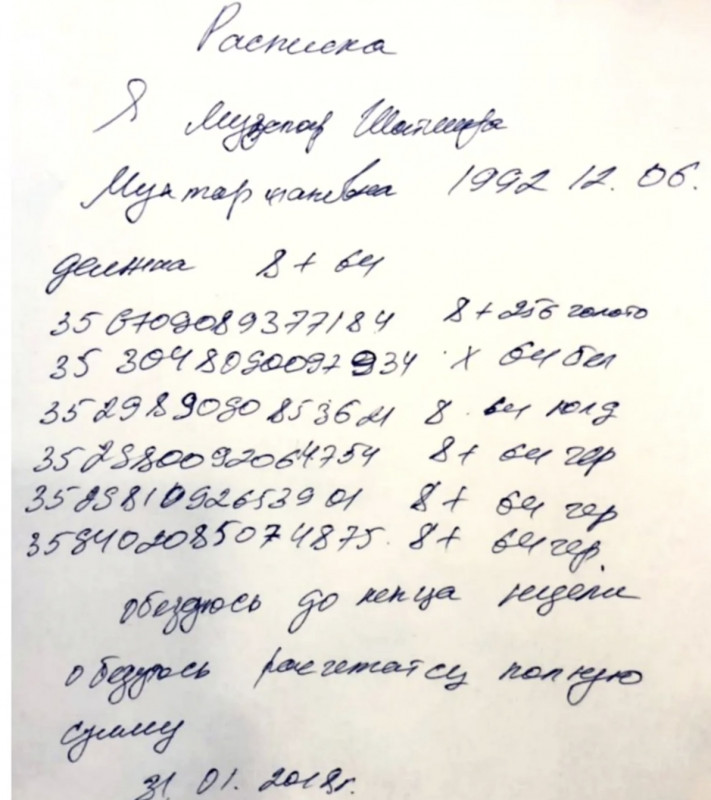 Расписка
Я Музапар Шатшера
Мухтархановна 1992 12. 06.
должна 8+ 64
356709089377184 8+256 золото
35 3048090097934 X 64 бел
352989090853621 8 64 голд
352980092064754 8+ 64 чер
352981092653901 8+ 64 чер
358402085074875. 8+ 64 чер
обездюсь до конца недели
обедуюсь расчетатсц полную
сумму
31. 01. 2018г.